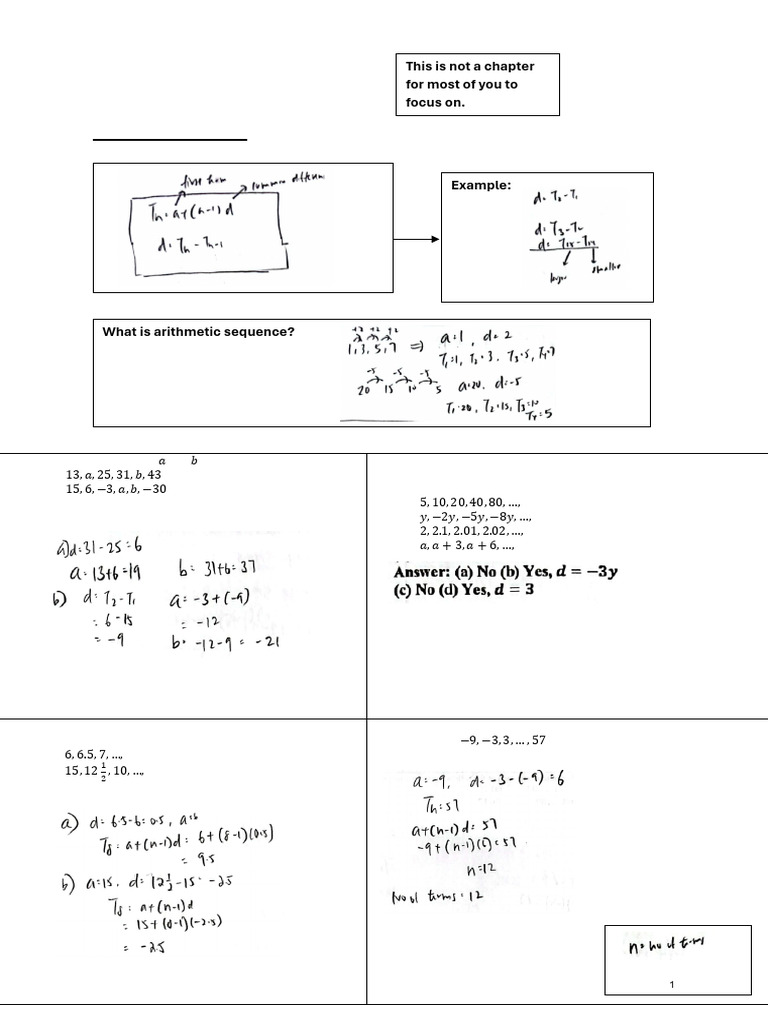 This is not a chapter
for most of you to
focus on.
first term
common
Tn = a+(n-1)d
d = Tn - Tn-1
Example:
d = T2 - T1
d = T3 - T2
d = T15 - T14
larger smaller
What is arithmetic sequence?
+2 +2 +2
1, 3, 5, 7 ⇒ a=1, d=2
T1=1, T2=3, T3=5, T4=7
-5 -5 -5
20 15 10 5 a=20, d=-5
T1=20, T2=15, T3=10
T4=5
a b
13, a, 25, 31, b, 43
15, 6, −3, a, b, −30
a) d=31-25=6
a=13+6=19 b= 31+6=37
b) d= T2-T1 a= -3+(-9)
= 6-15 = -12
= -9 b= -12-9 = -21
5, 10, 20, 40, 80, …,
y, −2y, −5y, −8y, …,
2, 2.1, 2.01, 2.02, …,
a, a + 3, a + 6, …,
Answer: (a) No (b) Yes, d = −3y
(c) No (d) Yes, d = 3
6, 6.5, 7, …,
15, 12 1/2, 10, …,
a) d= 6.5-6=0.5, a=6
T8= a+(n-1)d= 6+(8-1)(0.5)
= 9.5
b) a=15, d= 12 1/2 -15= -2.5
T8= a+(n-1)d
= 15+(8-1)(-2.5)
= -2.5
−9, −3, 3, … , 57
a= -9, d= -3-(-9)=6
Tn=57
a+(n-1)d=57
-9+(n-1)(6)=57
n=12
No of terms=12
n= no of terms
1